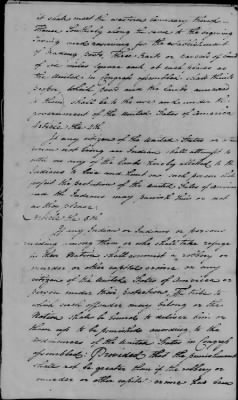 it shall meet the western boundary thence
Southerly along the same to the beginning
saving and reserving for the establishment
of trading posts, three tracts or parcels of land
of six miles square each at such places as
the United in Congress assembled shall think
proper, which posts and the lands annexed
to them, shall be to the use and under the
government of the United States of America
Article the 4th
If any citizen of the United States or
person not being an Indian shall attempt to
settle on any of the lands hereby allotted to the
Indians to live and hunt on such person shall
forfeit the protection of the United States of America
and the Indians may punish him or not
as they please.
Article the 5th
If any Indian or Indians or persons
residing among them or who shall take refuge
in their Nation shall commit a robbery or
murder or other capital crime on any
citizen of the United States of America or
person under their protection, the tribe to
which such offender may belong or the
Nation shall be bound to deliver him or
them up to be punished according to the
ordinances of the United States in Congress
assembled: Provided that the punishment
shall not be greater than if the robbery or
murder or other capital crime has been